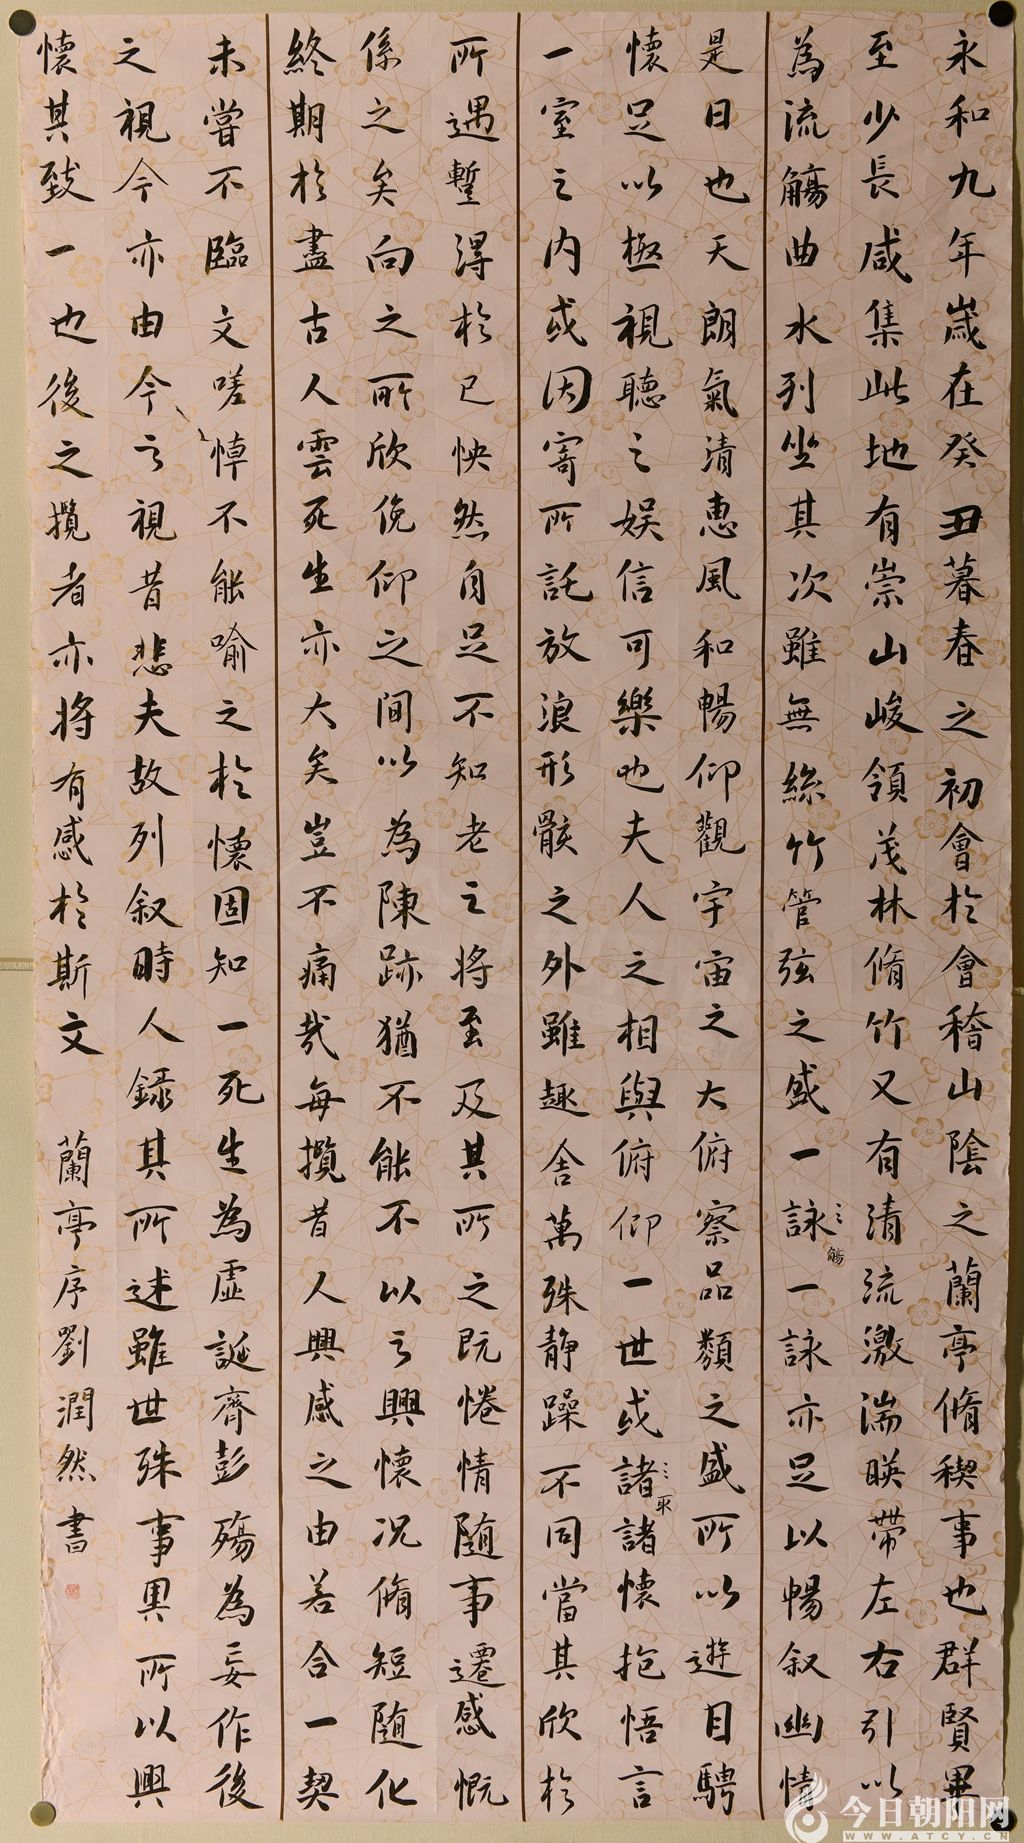 永和九年歲在癸丑暮春之初會於會稽山陰之蘭亭脩稧事也群賢畢
至少長咸集此地有崇山峻領茂林脩竹又有清流激湍暎帶左右引以
為流觴曲水列坐其次雖無絲竹管弦之盛一詠〻觴一詠亦足以暢叙幽情
是日也天朗氣清惠風和暢仰觀宇宙之大俯察品類之盛所以遊目騁
懷足以極視聽之娱信可樂也夫人之相與俯仰一世或諸〻取諸懷抱悟言
一室之内或因寄所託放浪形骸之外雖趣舍萬殊静躁不同當其欣於
所遇蹔得於己怏然自足不知老之將至及其所之既惓情随事遷感慨
係之矣向之所欣俛仰之間以為陳跡猶不能不以之興懷况脩短随化
終期於盡古人雲死生亦大矣豈不痛哉每攬昔人興感之由若合一契
未嘗不臨文嗟悼不能喻之於懷固知一死生為虛誕齊彭殤為妄作後
之視今亦由今之視昔悲夫故列叙時人録其所述雖世殊事異所以興
懷其致一也後之攬者亦將有感於斯文 蘭亭序劉潤然書
今日朝阳网
WWW.ATCY.CN